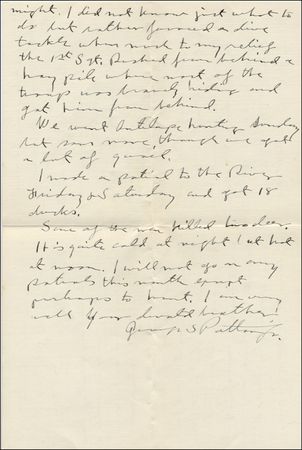 might. I did not know just what to
do but rather favored a dive
tackle when much to my relief
the 1st Sgt. Rushed from behind a
hay pile where most of the
troop was bravely hiding and
got him from behind.
We went Antelope hunting Sunday
but saw none, though we got
a lot of quail.
I made a patrol to the River
Friday & Saturday and got 18
ducks.
Some of the men killed two deer.
It is quite cold at night but hot
at noon. I will not go on any
patrols this month except
perhaps to hunt. I am very
well. Your devoted
George S Patton Jr.